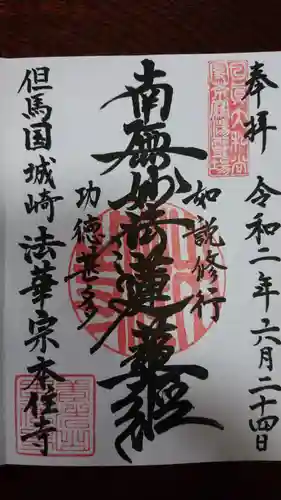 奉拝 令和二年六月二十四日
如説修行
南無妙法蓮華経
功徳甚多
但馬国城崎 法華宗本住寺